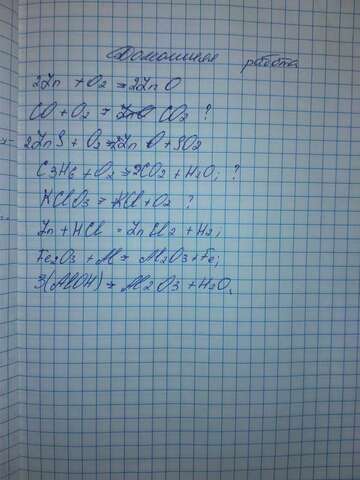 Домашняя работа
2Zn + O2 = 2ZnO
CO + O2 = CO2 ?
2ZnS + O2 = 2ZnO + SO2
C3H6 + O2 = 2CO2 + H2O; ?
KClO3 = KCl + O2 ?
Zn + HCl = ZnCl2 + H2;
Fe2O3 + Al = Al2O3 + Fe;
3(AlOH) = Al2O3 + H2O.